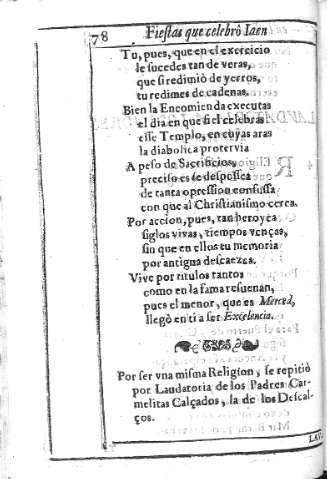 78 Fiestas que celebrò Iaen
Tu, pues, que en el exercicio
le sucedes tan de veras,
que si redimiò de yerros,
tu redimes de cadenas.
Bien la Encomienda executas
el dia en que fiel celebras
esse Templo, en cuyas aras
la diabolica protervia
A peso de Sacrificios,
preciso es se despossea
de tanta opression confussa
con que al Christianismo cerca.
Por accion, pues, tan heroyca
siglos vivas, tiempos venças,
sin que en ellos tu memoria
por antigua descaezca.
Vive por titulos tantos
como en la fama resuenan,
pues el menor, que es Merced,
llegò en ti a ser Excelencia.
Por ser vna misma Religion, se repitiò
por Laudatoria de los Padres Car-
melitas Calçados, la de los Descal-
ços.
LAU